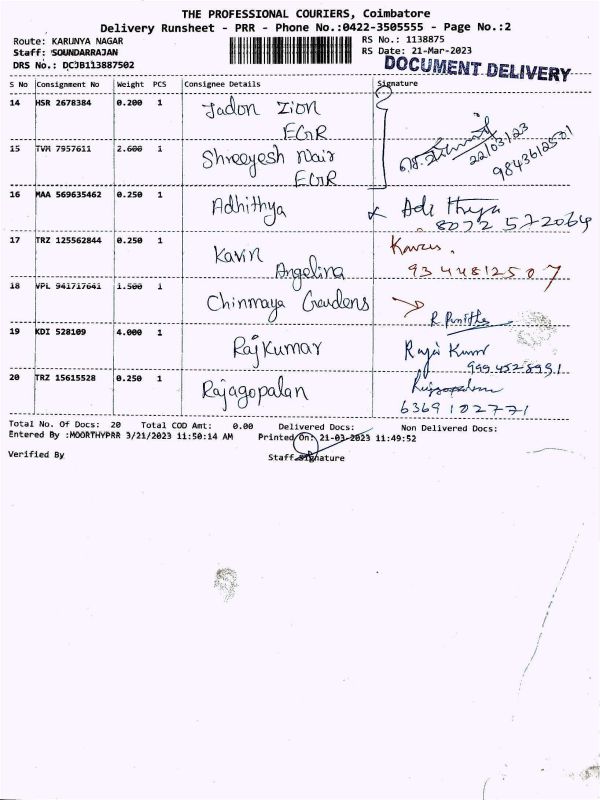 THE PROFESSIONAL COURIERS, Coimbatore
Delivery Runsheet - PRR - Phone No.:0422-3505555 - Page No.:2
Route: KARUNYA NAGAR RS No.: 1138875
Staff: SOUNDARRAJAN RS Date: 21-Mar-2023
DRS No.: DCJB113887502 DOCUMENT DELIVERY
S No Consignment No Weight PCS Consignee Details Signature
14 HSR 2678384 0.200 1 Jadon Zion
EGR
22/03/23
15 TVM 7957611 2.600 1 Shreeyesh Nair 9843612501
EGR
16 MAA 569635462 0.250 1 Adhithya Adithya
8072 572064
17 TRZ 125562844 0.250 1 Kavin Kavin.
Angelina 9344812507
18 VPL 941717641 1.500 1 Chinmaya Gardens
R. Punitha
19 KDI 528109 4.000 1 RajKumar Raja Kumar
20 TRZ 15615528 0.250 1 Rajagopalan Rajagopalan
6369102771
Total No. Of Docs: 20 Total COD Amt: 0.00 Delivered Docs: Non Delivered Docs:
Entered By :MOORTHYPRR 3/21/2023 11:50:14 AM Printed On: 21-03-2023 11:49:52
Verified By Staff Signature